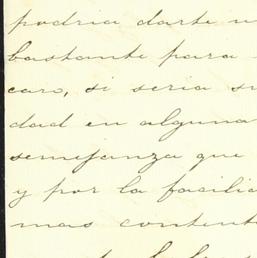 podria darte u
bastante para
caro, si seria su
dad en alguna
semejanza que
y por la facilid
mas content